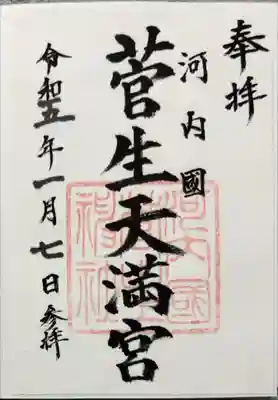 奉拝
河内國
菅生天満宮
令和五年一月七日参拝